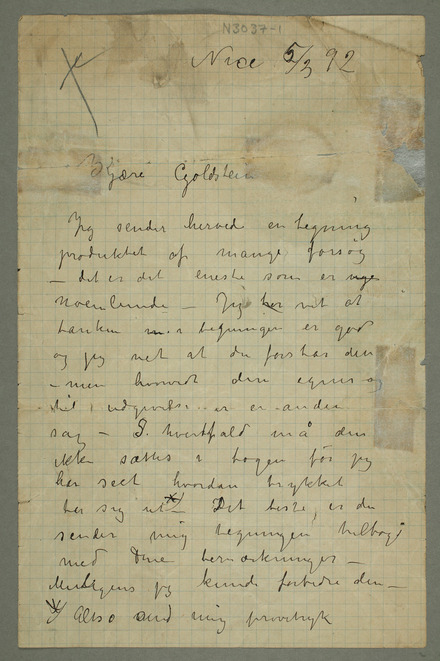 N3037-1
Nice 5/3 92
Kjære Goldstein
Jeg sender herved en tegning
produktet af mange forsøg
– det er det eneste som er
noenlunde – Jeg vet at
tanken m. i tegningen er god
og jeg vet at du forstaar den
– men hvorvidt den egner sig
til udgivelse er en anden
sag – I hvertfald må den
ikke sættes i bogen før jeg
har seet hvordan trykket
ter sig ut x) Det beste er du
sender mig tegningen tilbage
med Dine bemærkninger –
Muligens jeg kunde forbedre den –
x) Altso send mig prøvetryk